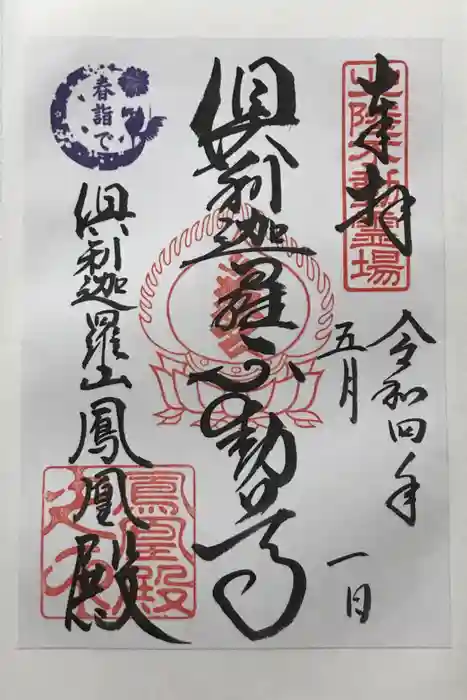 奉拝
北陸不動霊場
令和四年
五月一日
俱利迦羅不動尊
春詣で
俱利迦羅山鳳凰殿
鳳凰殿